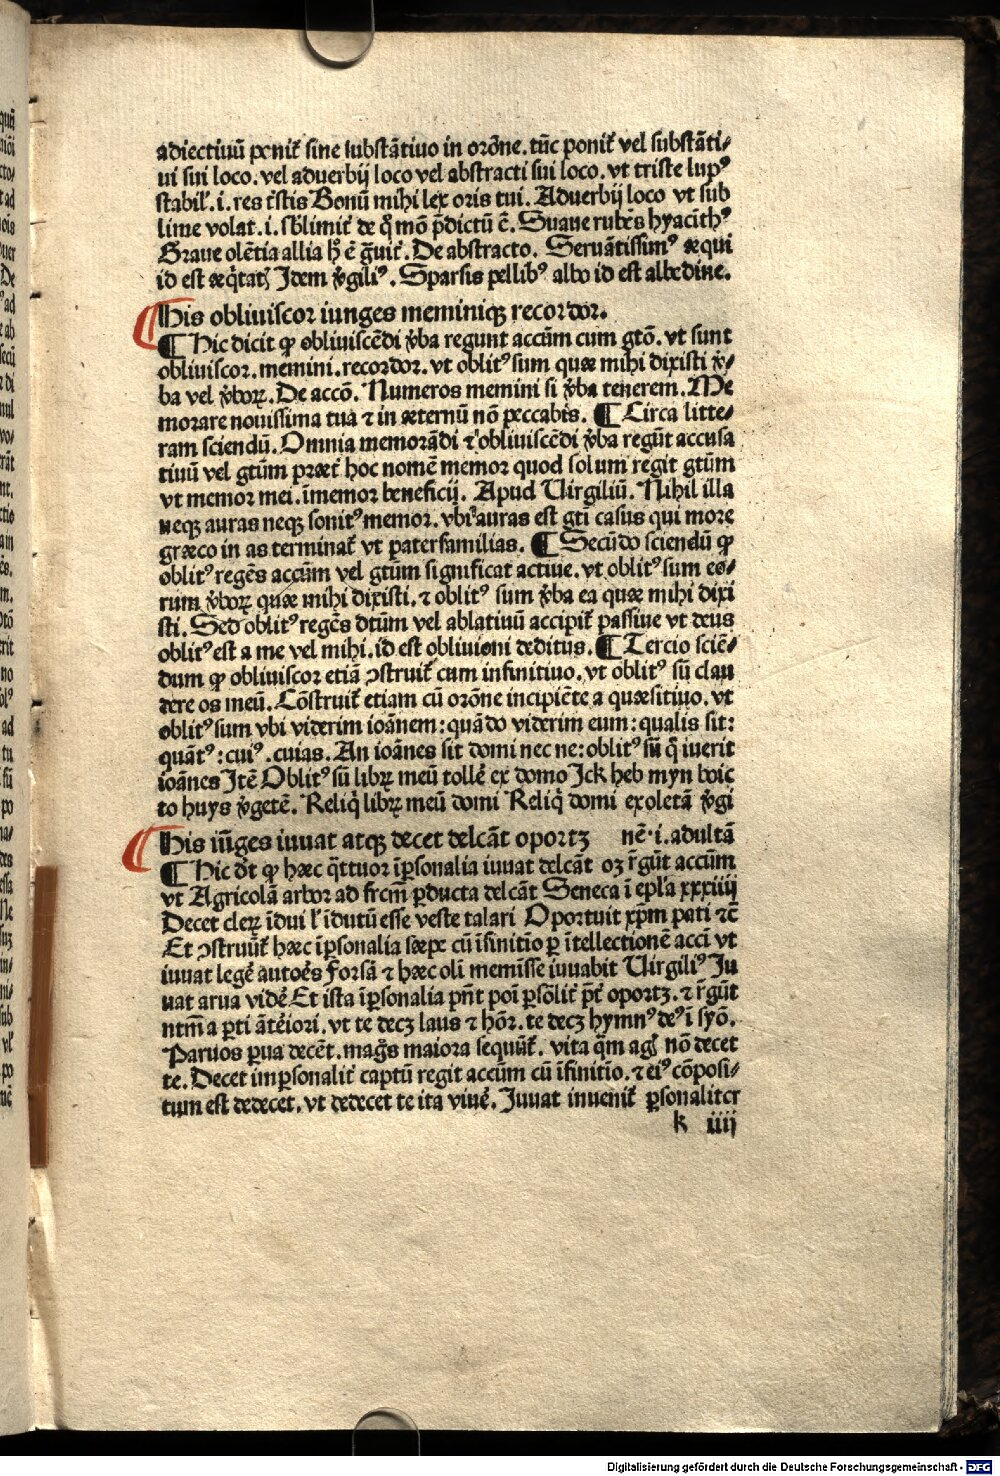 adiectiuū ponit᷑ sine substātiuo in orōne. tūc ponit᷑ vel substāti⸗
ui sui loco. vel aduerbij loco vel abstracti sui loco. vt triste lupꝰ
stabil᷑. i. res tristis Bonū mihi lex oris tui. Aduerbij loco vt sub
lime volat. i. sblimit᷑ de q̄ mō p̄dictū ē. Suaue rubēs hyacīthꝰ
Graue olētia allia hͦ ē grauit᷑. De abstracto. Seruātissimꝰ æqui
id est æq̄tatꝭ Idem v̄giliꝰ. Sparsis pellibꝰ albo id est albedine.
His obliuiscor iunges meminiqꝫ recordor.
¶ Hic dicit ꝙ obliuiscēdi v̄ba regunt accūm cum gtō. vt sunt
obliuiscor. memini. recordor. vt oblitꝰ sum quæ mihi dixisti v̄⸗
ba vel v̄boꝝ. De accō. Numeros memini si v̄ba tenerem. Me
morare nouissima tua ⁊ in æternū nō peccabis. ¶ Circa litte⸗
ram sciendū. Omnia memorādi ⁊ obliuiscēdi v̄ba regūt accusa
tiuū vel gtūm præt᷑ hoc nomē memor quod solum regit gtūm
vt memor mei. īmemor beneficij. Apud Uirgiliū. Nihil illa
neqꝫ auras neqꝫ sonitꝰ memor. vbi auras est gtī casus qui more
græco in as terminat᷑ vt paterfamilias. ¶ Secūdo sciendū ꝙ
oblitꝰ regēs accūm vel gtūm significat actiue. vt oblitꝰ sum eo⸗
rum v̄boꝝ quæ mihi dixisti. ⁊ oblitꝰ sum v̄ba ea quæ mihi dixi
sti. Sed oblitꝰ regēs dtūm vel ablatiuū accipit᷑ passiue vt deus
oblitꝰ est a me vel mihi. id est obliuioni deditus. ¶ Tercio sciē⸗
dum ꝙ obliuiscor etiā ꝯstruit᷑ cum infinitiuo. vt oblitꝰ sū clau
dere os meū. Cōstruit᷑ etiam cū orōne incipiēte a quæsitiuo. vt
oblitꝰ sum vbi viderim ioānem: quādo viderim eum: qualis sit:
quātꝰ: cuiꝰ. cuias. An ioānes sit domi nec ne: oblitꝰ sū q̄ iuerit
ioānes Itē Oblitꝰ sū libꝝ meū tollē ex domo Ick heb myn boic
to huys v̄getē. Reliq̄ libꝝ meū domi Reliq̄ domi exoletā v̄gi
His iūges iuuat atqꝫ decet delcāt oportꝫ nē. i. adultā
¶ Hic dr̄t ꝙ hæc q̄ttuor īꝑsonalia iuuat delcāt oꝫ r̄gūt accūm
vt Agricolā arbor ad frcm̄ ꝑducta delcāt Seneca ī epl̄a xxxiiij
Decet cleꝝ īdui l᷑ īdutū esse veste talari Oportuit xp̄m pati ⁊c̄
Et ꝯstruūt᷑ hæc īꝑsonalia sæpe cū īfinitīo ꝑ ītellectionē accī vt
iuuat legē autoēs Forsā ⁊ hæc olī memīsse iuuabit Uirgiliꝰ Iu
uat arua vidē Et ista īꝑsonalia pn̄t poī ꝑsōlit᷑ p̄t oportꝫ. ⁊ r̄gūt
ntm̄ a ꝑti āteīori. vt te decꝫ laus ⁊ hōr. te decꝫ hymnꝰ deꝰ ī syō.
Paruos ꝑua decēt. mag̊s maiora sequūt᷑. vita q̄m agꝭ nō decet
te. Decet imꝑsonalit᷑ captū regit accūm cū īfinitīo. ⁊ eiꝰ cōposi⸗
tum est dedecet. vt dedecet te ita viuē. Iuuat inuenit᷑ ꝑsonaliter
k iiij
Digitalisierung gefördert durch die Deutsche Forschungsgemeinschaft - DFG